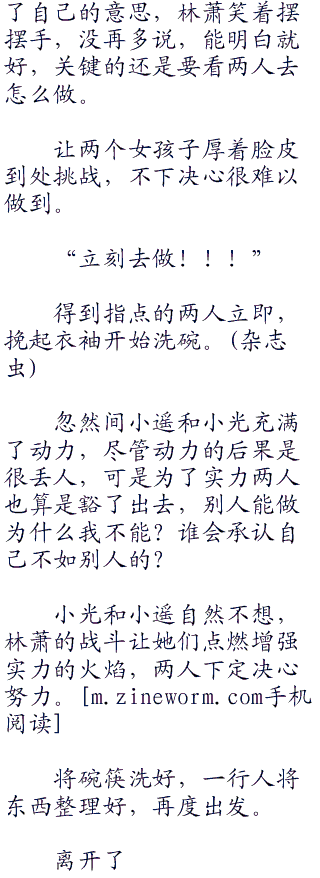 了自己的意思，林萧笑着摆
摆手，没再多说，能明白就
好，关键的还是要看两人去
怎么做。
让两个女孩子厚着脸皮
到处挑战，不下决心很难以
做到。
“立刻去做！！！”
得到指点的两人立即，
挽起衣袖开始洗碗。(杂志
虫)
忽然间小遥和小光充满
了动力，尽管动力的后果是
很丢人，可是为了实力两人
也算是豁了出去，别人能做
为什么我不能？谁会承认自
己不如别人的？
小光和小遥自然不想，
林萧的战斗让她们点燃增强
实力的火焰，两人下定决心
努力。[m.zineworm.com手机
阅读]
将碗筷洗好，一行人将
东西整理好，再度出发。
离开了